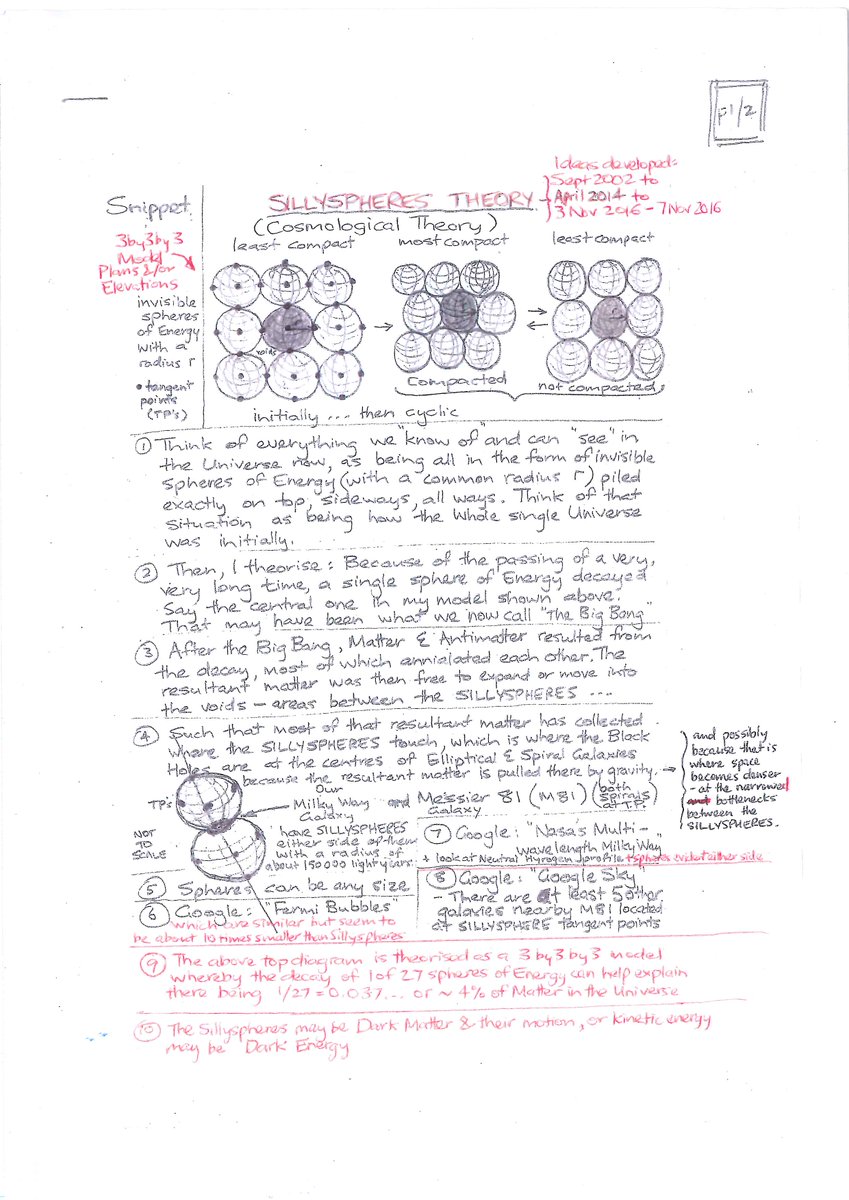 F1/2
Ideas developed:
Sept 2002 to
April 2014 to
3 Nov 2016 - 7 Nov 2016
Snippet
SILLYSPHERES THEORY
(Cosmological Theory)
3by3by3
Model
Plans &/or
Elevations
least compact
most compact
least compact
invisible
spheres
of Energy
with a
radius r
• tangent
points
(TP's)
r
voids
Compacted
not compacted
initially ... then cyclic
① Think of everything we "know of" and can "see" in
the Universe now, as being all in the form of invisible
spheres of Energy (with a common radius r) piled
exactly on top, sideways, all ways. Think of that
situation as being how the whole single Universe
was initially.
② Then, I theorise: Because of the passing of a very,
very long time, a single sphere of Energy decayed
Say the central one in my model shown above.
That may have been what we now call "The Big Bang"
③ After the Big Bang, Matter & Antimatter resulted from
the decay, most of which annialated each other. The
resultant matter was then free to expand or move into
the voids - areas between the SILLYSPHERES ....
④ Such that most of that resultant matter has collected
where the SILLYSPHERES touch, which is where the Black
Holes are at the centres of Elliptical & Spiral Galaxies
because the resultant matter is pulled there by gravity. →
and possibly
because that is
where space
becomes denser
- at the narrowed
bottlenecks
between the
SILLYSPHERES.
TP's
NOT
TO
SCALE
Our
Milky Way and Messier 81 (M81) (both spirals at T.P.)
Galaxy Galaxy
have SILLYSPHERES
either side of them
with a radius of
about 150000 light years.
⑦ Google: "Nasa's Multi-
wavelength Milky Way
+ look at Neutral Hydrogen profile + spheres evident either side
⑤ Spheres can be any size
⑥ Google: "Fermi Bubbles"
which are similar but seem to
be about 10 times smaller than Sillyspheres
⑧ Google: "Google Sky"
- There are at least 5 other
galaxies nearby M81 located
at SILLYSPHERE tangent points
⑨ The above top diagram is theorised as a 3by3by3 model
whereby the decay of 1 of 27 spheres of Energy can help explain
there being 1/27 = 0.037... or ~ 4% of Matter in the Universe
⑩ The Sillyspheres may be Dark Matter & their motion, or kinetic energy
may be Dark Energy